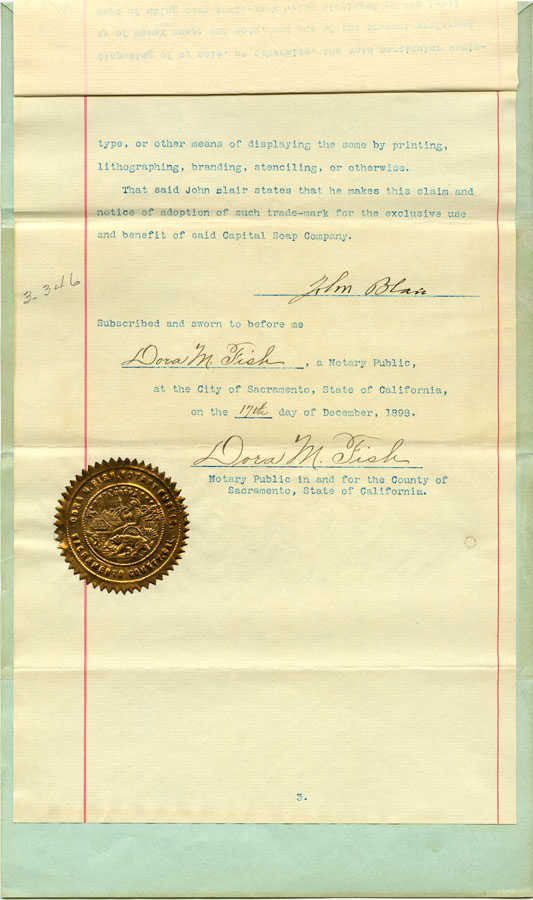 type, or other means of displaying the same by printing,
lithographing, branding, stenciling, or otherwise.
That said John Blair states that he makes this claim and
notice of adoption of such trade-mark for the exclusive use
and benefit of said Capital Soap Company.
3-346
John Blair
Subscribed and sworn to before me
Dora M. Fish, a Notary Public,
at the City of Sacramento, State of California,
on the 17th day of December, 1898.
Dora M. Fish
Notary Public in and for the County of
Sacramento, State of California.
DORA M. FISH, NOTARY PUBLIC
SACRAMENTO COUNTY, CAL.
3.